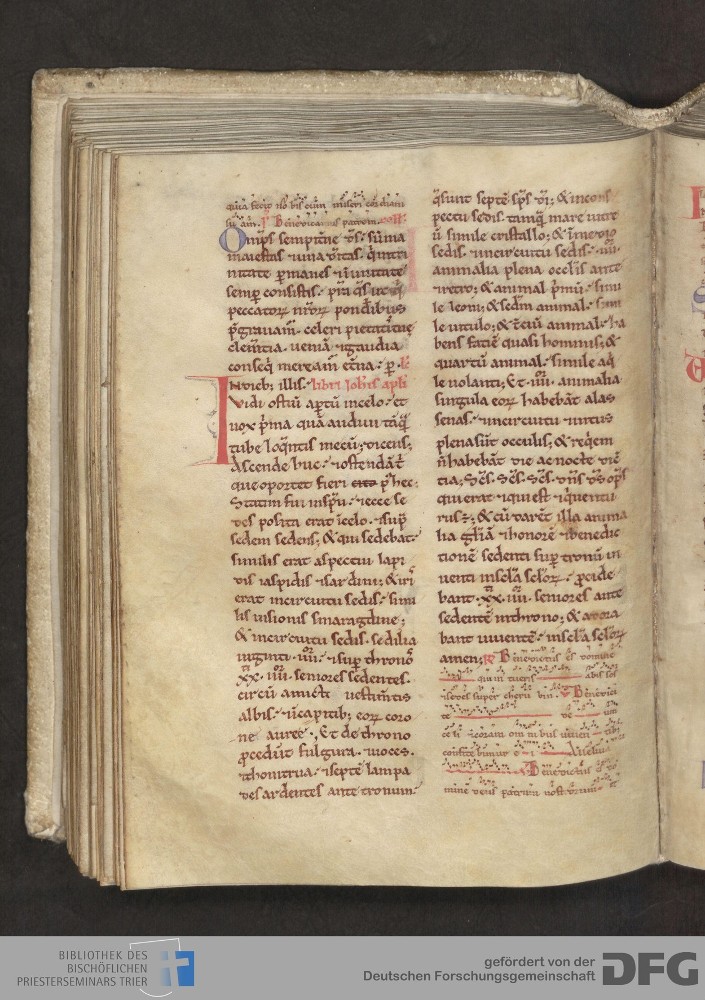 quia fecit nobis cum misericordiam
suā. am̄. Benedicamus patrem
Omp̄s sempit̄ne d̄s. sūma
maiestas ⁊ una dītas. q̄ in tri
nitate p̄manes ⁊ in unitate
semp̄ consistis. p̄sta q̄s ut q̄
peccatoꝝ nr̄oꝝ pondīb;
p̄grauam̄. celeri pietatis tue
clem̄tia. ueniā ⁊ gaudia
conseq̄ meream̄ et̄na. p̄.
In dieb; illis. libri Ioh̄is apl̄i
Vidi ostiū ap̄tū in celo. et
uox p̄ma quā audiui tāq̄
tube loq̄ntis mecū. dicens;
Ascende huc. ⁊ ostendā t̄
que oportet fieri cito p̄ hec;
Statim fui in sp̄u. ⁊ ecce se
des posita erat ī celo. ⁊ sup̄
sedem sedens; & qui sedebat.
similis erat aspectui lapi
dis iaspidis ⁊ sardini; & iri
erat in circuitu sedis. simi
lis uisionis smaragdine;
& in circuitu sedis. sedilia
uiginti. iiii. ⁊ sup̄ thronō
xx. iiii. seniores sedentes.
circū amicti uestim̄tis
albis. ⁊ in capitib; eoꝝ coro
ne auree. Et de throno
p̄cedūt fulgura. ⁊ uoces.
⁊ thonitrua. ⁊ septē lampa
des ardentes ante tronum.
q̄ sunt septē sp̄s di; & in cons
pectu sedis. tamq̄ mare uitre
ū simile cristallo; & in medio
sedis. ⁊ in circuitu sedis. iiii.
animalia plena oculis ante
⁊ retro; & animal p̄mū. simi
le leoni; & sc̄dm animal. simi
le uitulo; & t̄ciū animal. ha
bens faciē quasi hominis; &
quartū animal. simile aq̄
le uolanti; Et. iiii. animalia
singula eoꝝ habebāt alas
senas. ⁊ in circuitu ⁊ intus
plena sūt occulis; & reqem
n̄ habebāt die ac nocte dicē
tia; Sc̄s. Sc̄s. Sc̄s. dn̄s d̄s op̄s
qui erat ⁊ qui est ⁊ q̄ uentu
rus; & cū darēt illa anima
lia gl̄iā ⁊ honorē ⁊ benedic
tionē sedenti sup̄ tronū ui
uenti in sc̄la sc̄loꝝ. p̄cide
bant. xx. iiii. seniores ante
sedentē in throno; & adora
bant uiuentē. in sc̄la sc̄loꝝ
amen; Benedictus es domine
qui in tueris abis sos
⁊ sedes super cheru bin. Benedici
te de um
ce li ⁊ coram om ni bus uiuen tib;
confite bimur e i Alleluia
Benedictus es do
mine deus patrum nostrorum
BIBLIOTHEK DES
BISCHÖFLICHEN
PRIESTERSEMINARS TRIER
gefördert von der
Deutschen Forschungsgemeinschaft
DFG